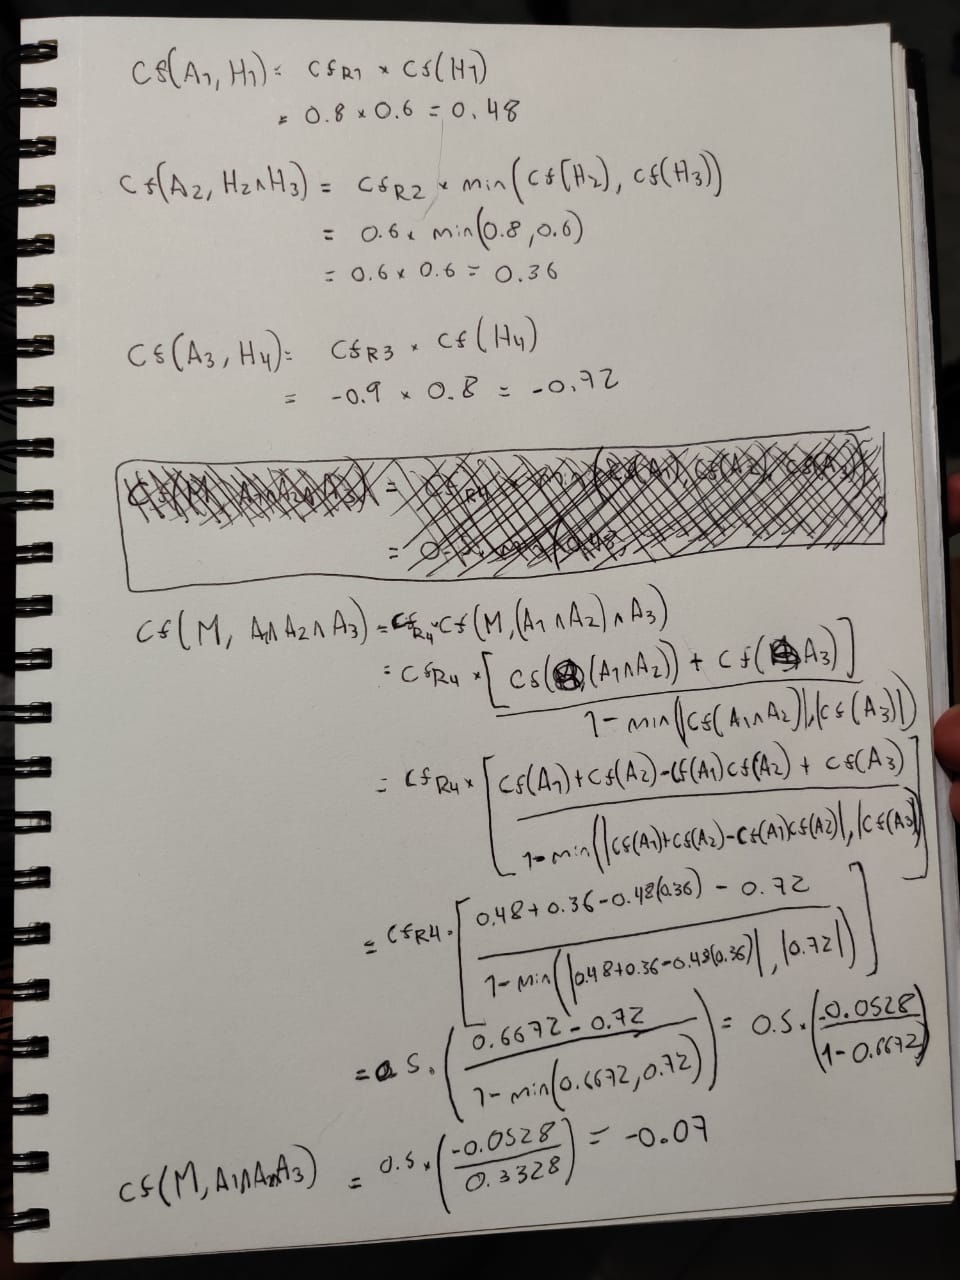 Cf(A1, H1) = CfR1 × Cf(H1)
= 0.8 × 0.6 = 0.48
Cf(A2, H2∧H3) = CfR2 × min(Cf(H2), Cf(H3))
= 0.6 × min(0.8, 0.6)
= 0.6 × 0.6 = 0.36
Cf(A3, H4) = CfR3 × Cf(H4)
= -0.9 × 0.8 = -0.72
Cf(M, A1∧A2∧A3) = CfR4 × min(Cf(A1), Cf(A2), Cf(A3))
Cf(M, A1∧A2∧A3) = CfR4 × Cf(M, (A1∧A2)∧A3)
= CfR4 × [Cf((A1∧A2)) + Cf(A3)]
1 - min(|Cf(A1∧A2)|, |Cf(A3)|)
= CfR4 × [Cf(A1) + Cf(A2) - Cf(A1)Cf(A2) + Cf(A3)]
1 - min(|Cf(A1)+Cf(A2)-Cf(A1)Cf(A2)|, |Cf(A3)|)
= CfR4 · [0.48 + 0.36 - 0.48(0.36) - 0.72]
1 - min(|0.48+0.36-0.48(0.36)|, |0.72|)
= 0.5 · (0.6672 - 0.72) = 0.5 × (-0.0528)
1 - min(0.6672, 0.72) 1 - 0.6672
Cf(M, A1∧A2∧A3) = 0.5 × (-0.0528) = -0.07
0.3328